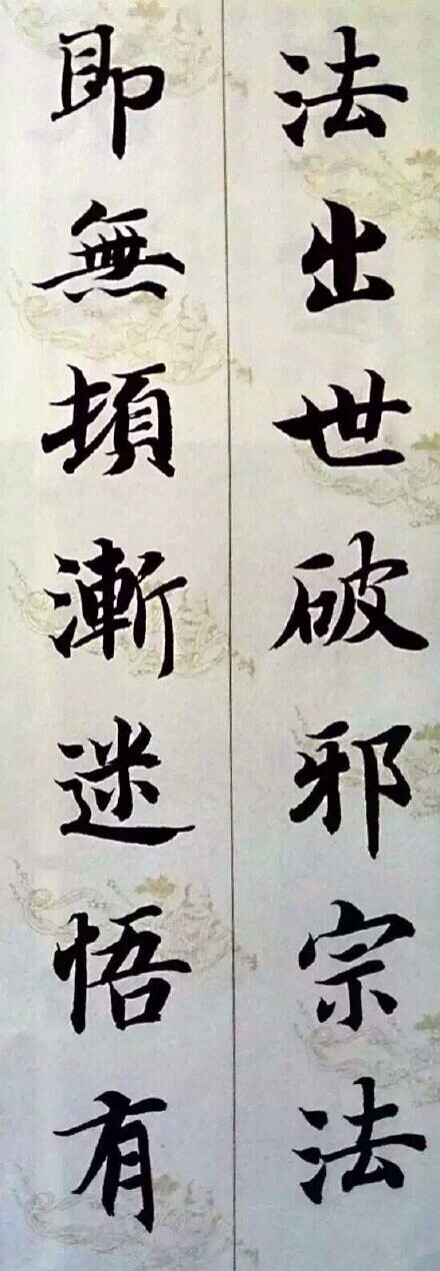 法出世破邪宗法
即無頓漸迷悟有